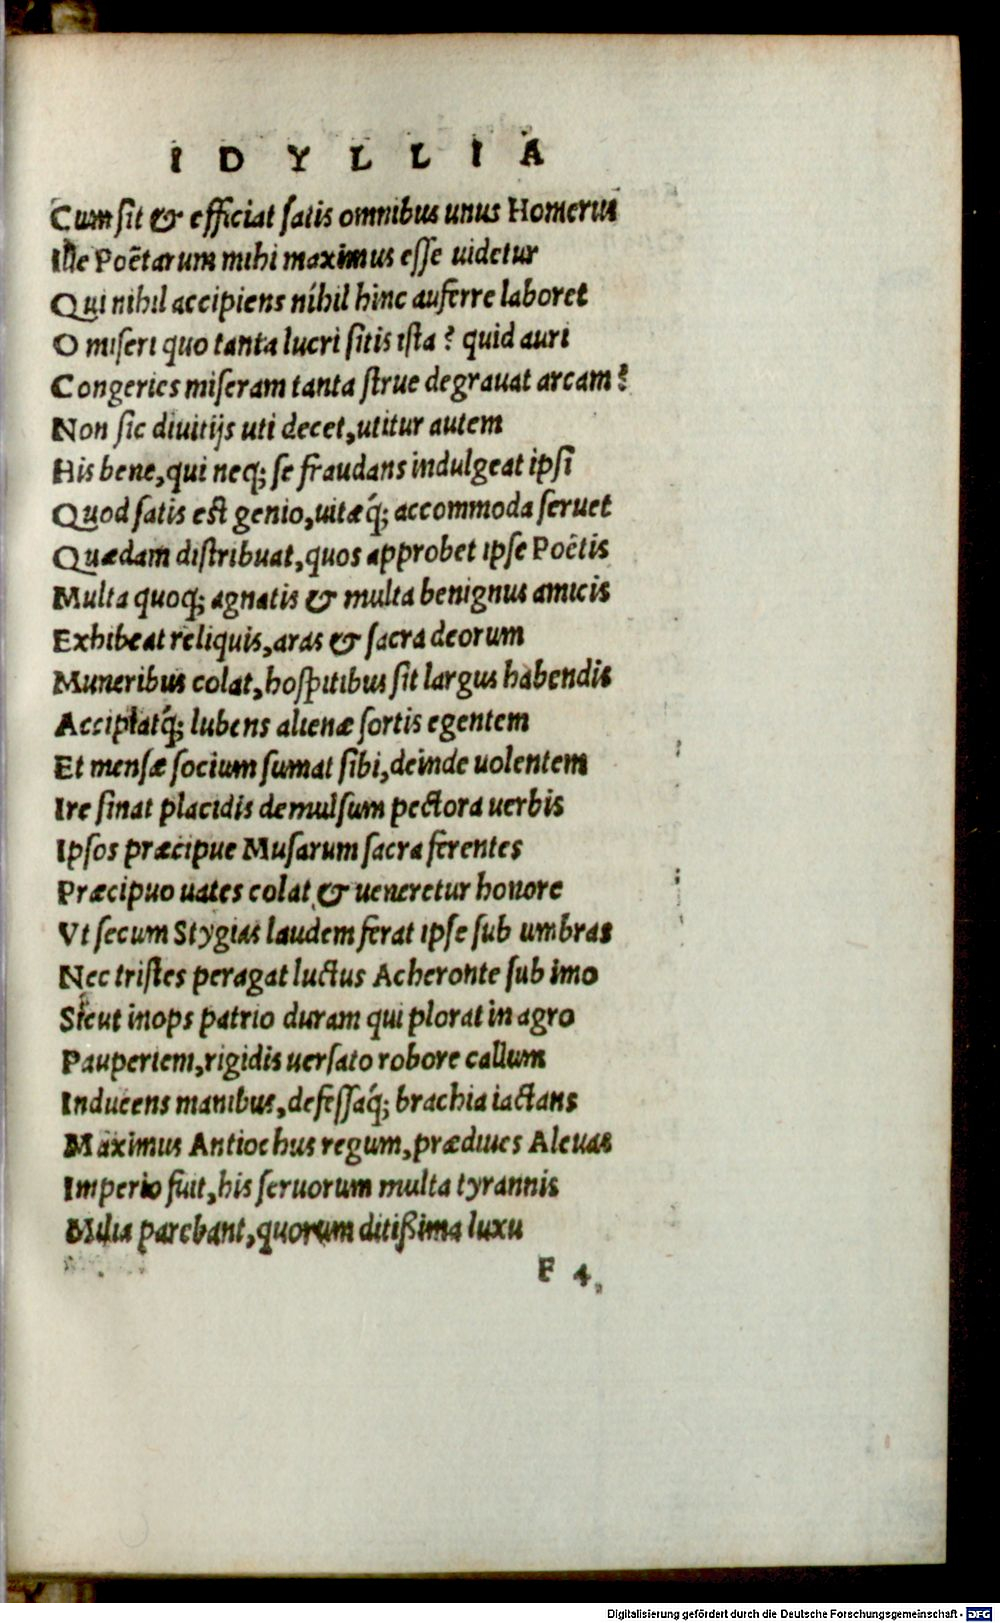 IDYLLIA
Cum ſit & efficiat ſatis omnibus unus Homerus
Ille Poëtarum mihi maximus eſſe uidetur
Qui nihil accipiens níhil hinc auferre laboret
O miſeri quo tanta lucri ſitis iſta? quid auri
Congeries miſeram tanta ſtrue degrauat arcam?
Non ſic diuitijs uti decet, utitur autem
His bene, qui neq; ſe fraudans indulgeat ipſi
Quod ſatis eſt genio, uitæq́; accommoda ſeruet
Quædam diſtribuat, quos approbet ipſe Poëtis
Multa quoq; agnatis & multa benignus amicis
Exhibeat reliquis, aras & ſacra deorum
Muneribus colat, hoſpitibus ſit largus habendis
Accipiatq́; lubens alienæ ſortis egentem
Et menſæ ſocium ſumat ſibi, deinde uolentem
Ire ſinat placidis demulſum pectora uerbis
Ipſos præcipue Muſarum ſacra ferentes
Præcipuo uates colat & ueneretur honore
Vt ſecum Stygias laudem ferat ipſe ſub umbras
Nec triſtes peragat luctus Acheronte ſub imo
Sicut inops patrio duram qui plorat in agro
Pauperiem, rigidis uerſato robore callum
Inducens manibus, defeſſaq́; brachia iactans
Maximus Antiochus regum, prædiues Aleuas
Imperio fuit, his ſeruorum multa tyrannis
Milia parebant, quorum ditißima luxu
F 4.
Digitalisierung gefördert durch die Deutsche Forschungsgemeinschaft - DFG